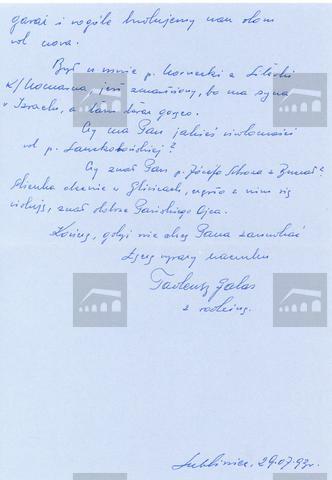 garaż i wogóle budujemy nam dom
od nowa.
Był u mnie p. Kornecki z Łódzki
jest zmartwiony, bo ma syna
w Izraelu, a tam teraz gorąco.
Czy ma Pan jakieś wiadomości
od p. Lanckorońskiej?
Czy znał Pan p. Józefa z
mieszka obecnie w Gliwicach, często z nim się
widuję, znał dobrze Pańskiego Ojca.
Kończę, gdyż nie chcę Pana zanudzać
Łączę wyrazy szacunku
Tadeusz Galas
z rodziną.
Lubliniec, 29.07.93r.